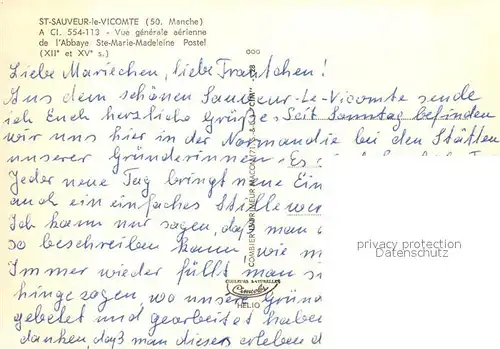 ST-SAUVEUR-le-VICOMTE (50. Manche)
A CI. 554-113 - Vue générale aérienne
de l'Abbaye Ste-Marie-Madeleine Postel
(XIIe et XVe s.)
Liebe Mariechen, liebe Frautchen!
Aus dem schönen Sauveur-Le-Vicomte sende
ich Euch herzliche Grüße. Seit Sonntag befinden
wir uns hier in der Normandie bei den Stätten
unserer Gründerinnen. Es
Jeder neue Tag bringt neue Ein
auch ein einfaches Stille
Ich kann nur sagen, daß man
so beschreiben kann, wie
Immer wieder füllt man
hingezogen, wo unsere Gründ
gebetet und gearbeitet habe
danken, daß man dieses erleben d
COMBIER IMPRIMEUR MACON
COULEURS NATURELLES
Cimcolor
HELIO
privacy protection
Datenschutz